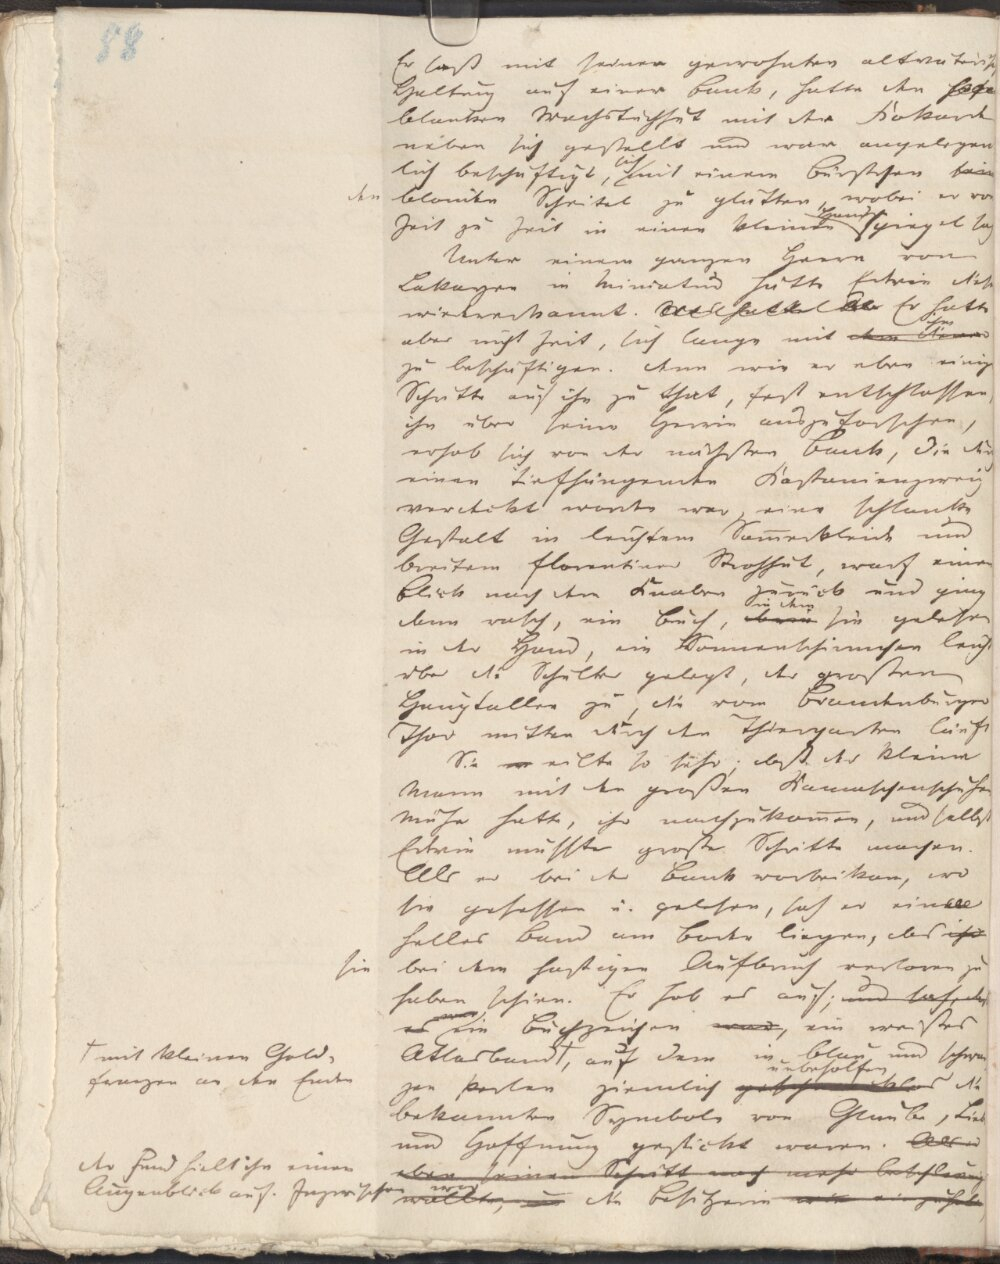 88
Er saß mit seiner gewohnten altväterisch
Haltung auf einer Bank, hatte den
blanken Wachstuchhut mit der Kokarde
neben sich gestellt und war angelegen
lich beschäftigt, sich mit einem Bürstchen
den blonden Scheitel zu glätten, wobei er von
Zeit zu Zeit in einen kleinen Handspiegel sah
Unter einem ganzen Heere von
Lakayen in Miniatur hätte Edwin diesen
wiedererkannt. Er hatte
aber nicht Zeit, sich lange mit ihm
zu beschäftigen. Denn wie er eben einige
Schritte auf ihn zu that, fest entschlossen,
ihn über seine Herrin auszuforschen,
erhob sich von der nächsten Bank, die durch
einen tiefhängenden Kastanienzweig
verdeckt worden war, eine schlanke
Gestalt in leichtem Sommerkleide und
breitem florentiner Strohhut, warf einen
Blick nach dem Knaben zurück und ging
dann rasch, ein Buch, in dem sie gelesen
in der Hand, ein Sonnenschirmchen leicht
über die Schulter gelegt, der großen
Hauptallee zu, die vom Brandenburger
Thor mitten durch den Thiergarten läuft
Sie eilte so sehr, daß der kleine
Mann mit den großen Kamaschenschuhen
Mühe hatte, ihr nachzukommen, und selbst
Edwin mußte große Schritte machen.
Als er bei der Bank vorbeikam, wo
sie gesessen u. gelesen, sah er ein
helles Band am Boden liegen, das
sie bei dem hastigen Aufbruch verloren zu
haben schien. Er hob es auf; und sah, daß
es ein Buchzeichen war, ein weißes
Atlasband†, auf dem in blau und schwar
† mit kleinen Gold-
franzen an den Enden
zen Perlen ziemlich unbeholfen die
bekannten Symbole von Glaube, Liebe
und Hoffnung gestickt waren. Als er
eben seinen Schritt noch mehr beschleunigen
der Fund hielt ihn einen
Augenblick auf. Inzwischen war
wollte, die Besitzerin